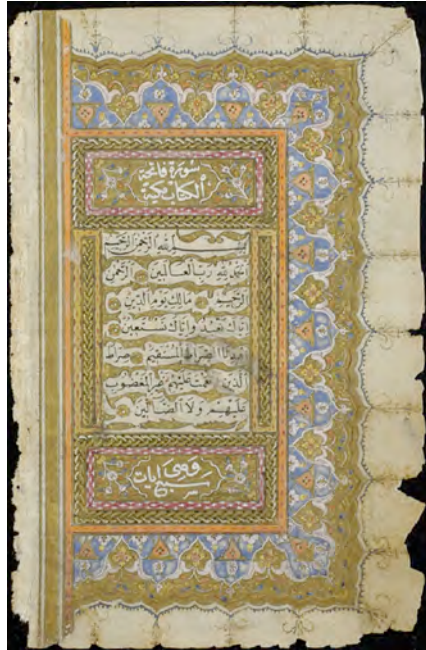 سورة فاتحة
الكتاب مكية
بسم الله الرحمن الرحيم
الحمد لله رب العالمين الرحمن
الرحيم مالك يوم الدين
اياك نعبد واياك نستعين
اهدنا الصراط المستقيم صراط
الذين انعمت عليهم غير المغضوب
عليهم ولا الضالين
وهي
سبع ايات